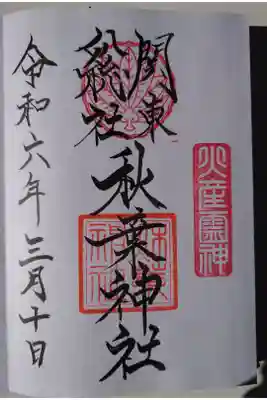 関東
総社
秋葉神社
火産霊神
令和六年三月十日